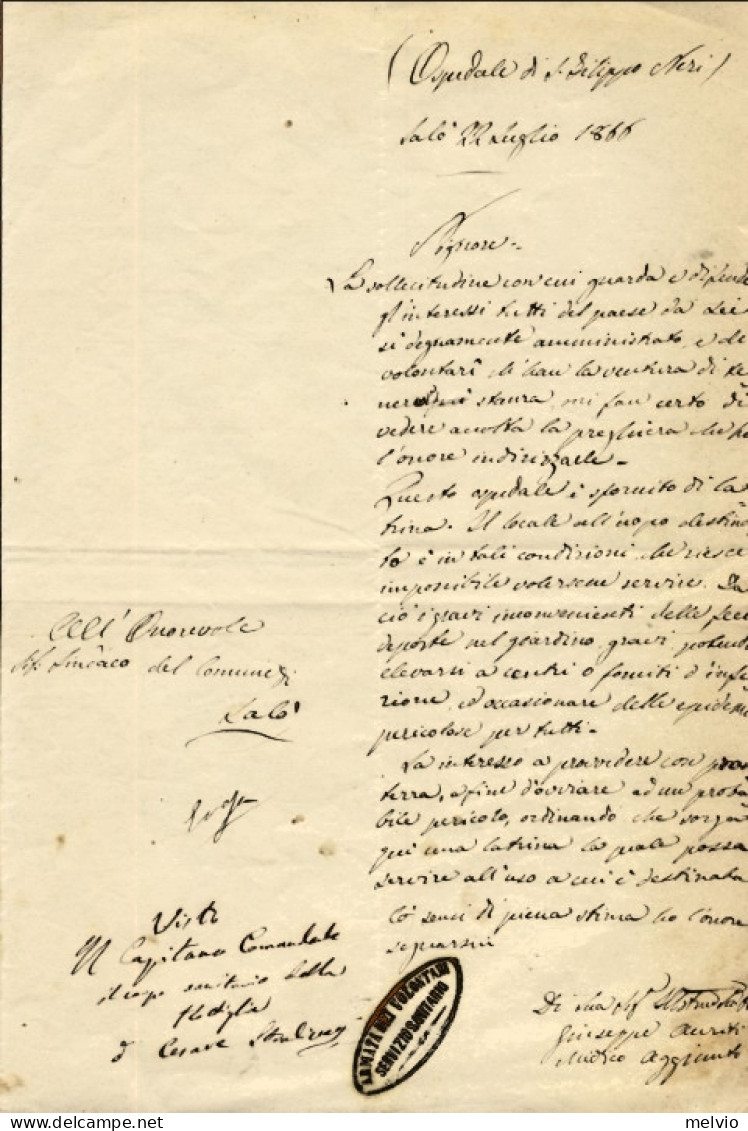 (Ospedale di S. Filippo Neri)
Salò 22 Luglio 1866
Signore -
La sollecitudine con cui guarda e difende
gl'interessi tutti del paese da Lei
sì degnamente amministrato, e de
volontari ch'han la ventura di te
nere stanza, mi fan certo di
vedere accolta la preghiera che ho
l'onore indirizzarle -
Questo ospedale è sfornito di la
trina. Il locale all'uopo destina
to è in tali condizioni, che riesce
impossibile volersene servire. Da
ciò i gravi inconvenienti delle feci
deposte nel giardino, gravi, potendo
elevarsi a centri o fomiti d'infe
zione, ed occasionare delle epidemie
pericolose per tutti -
La interesso a provvedere con
terra, a fine d'ovviare ad un proba
bile pericolo, ordinando che sorga
qui una latrina la quale possa
servire all'uso a cui è destinata
Co' sensi di piena stima ho l'onore
segnarmi
Di Sua
Giuseppe Aureti
Medico Aggiunto
All' Onorevole
Sindaco del Comune di
Salò
Visto
Il Capitano Comandante
il corpo sanitario della
flottiglia
Cesare
ARMATA DEI VOLONTARI
SERVIZIO SANITARIO
melvio